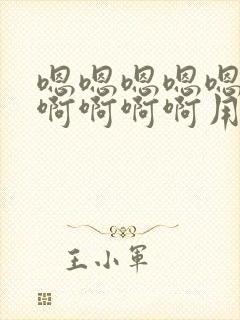 嗯嗯嗯嗯嗯
啊啊啊啊用
王小军